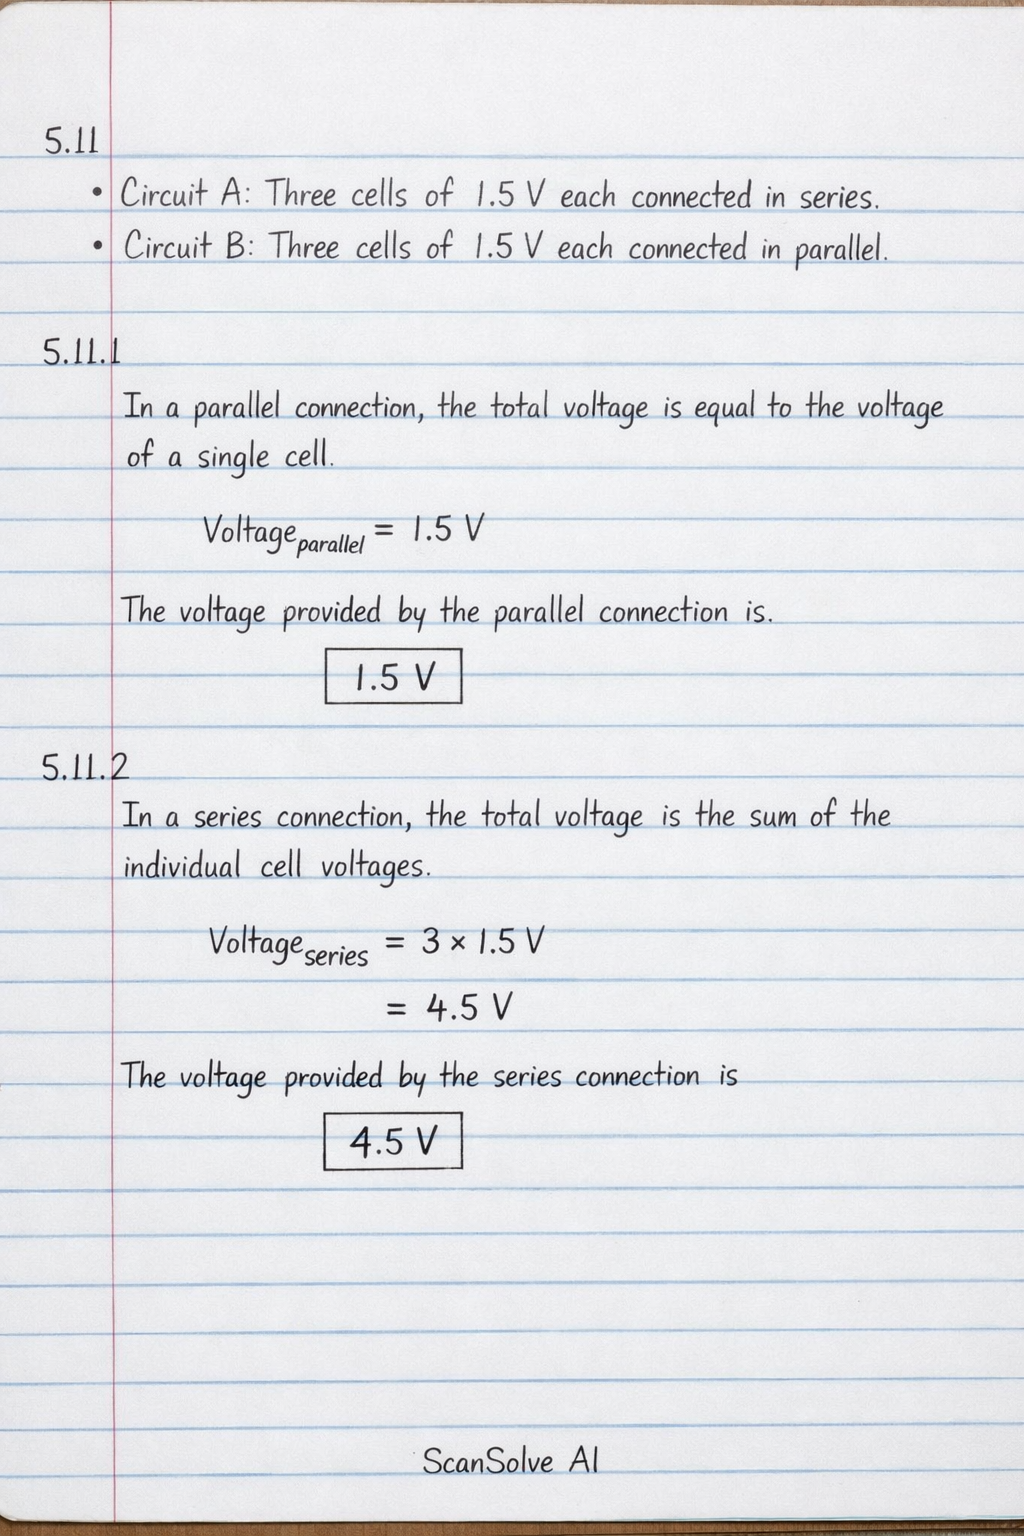 5.11
• Circuit A: Three cells of 1.5 V each connected in series.
• Circuit B: Three cells of 1.5 V each connected in parallel.
5.11.1
In a parallel connection, the total voltage is equal to the voltage
of a single cell.
Voltage_parallel = 1.5 V
The voltage provided by the parallel connection is.
1.5 V
5.11.2
In a series connection, the total voltage is the sum of the
individual cell voltages.
Voltage_series = 3 × 1.5 V
= 4.5 V
The voltage provided by the series connection is
4.5 V
ScanSolve AI